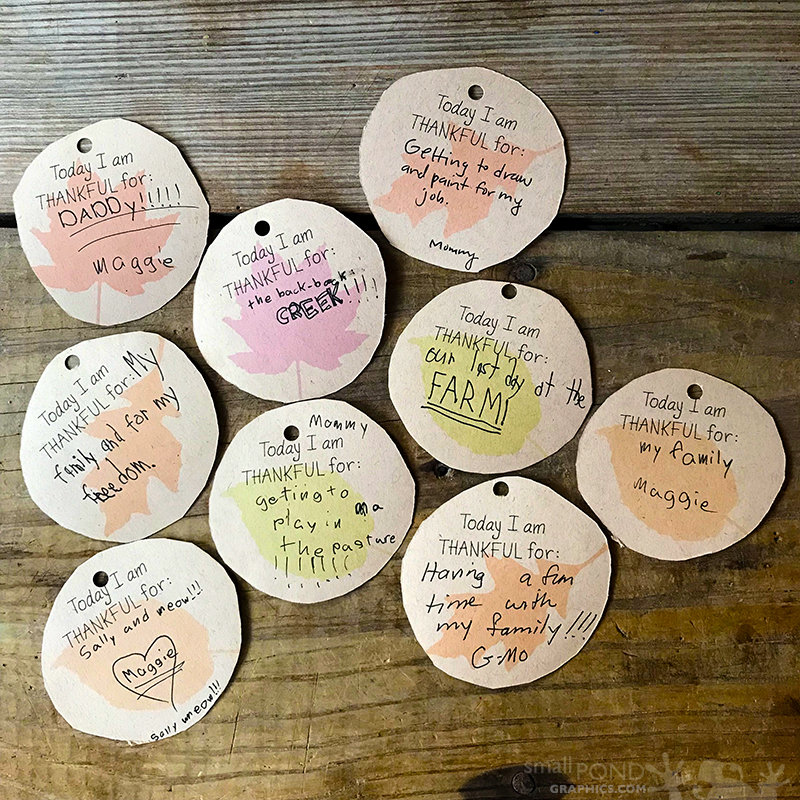 Today I am
THANKFUL for:
Getting to draw
and paint for my
job.
Mommy
Today I am
THANKFUL for:
DADDy!!!!!
Maggie
Today I am
THANKFUL for:
the back-back
CREEK!!!!
Today I am
THANKFUL for:
our last day at the
FARM!
Today I am
THANKFUL for: My
family and for my
freedom.
Today I am
THANKFUL for:
my family
Maggie
Mommy
Today I am
THANKFUL for:
getting to
play in
the pasture
!!!!!!!
Today I am
THANKFUL for:
Having a fun
time with
my family!!!
G-MO
Today I am
THANKFUL for:
Sally and meow!!!
Maggie
Sally
smallPOND
GRAPHICS.COM